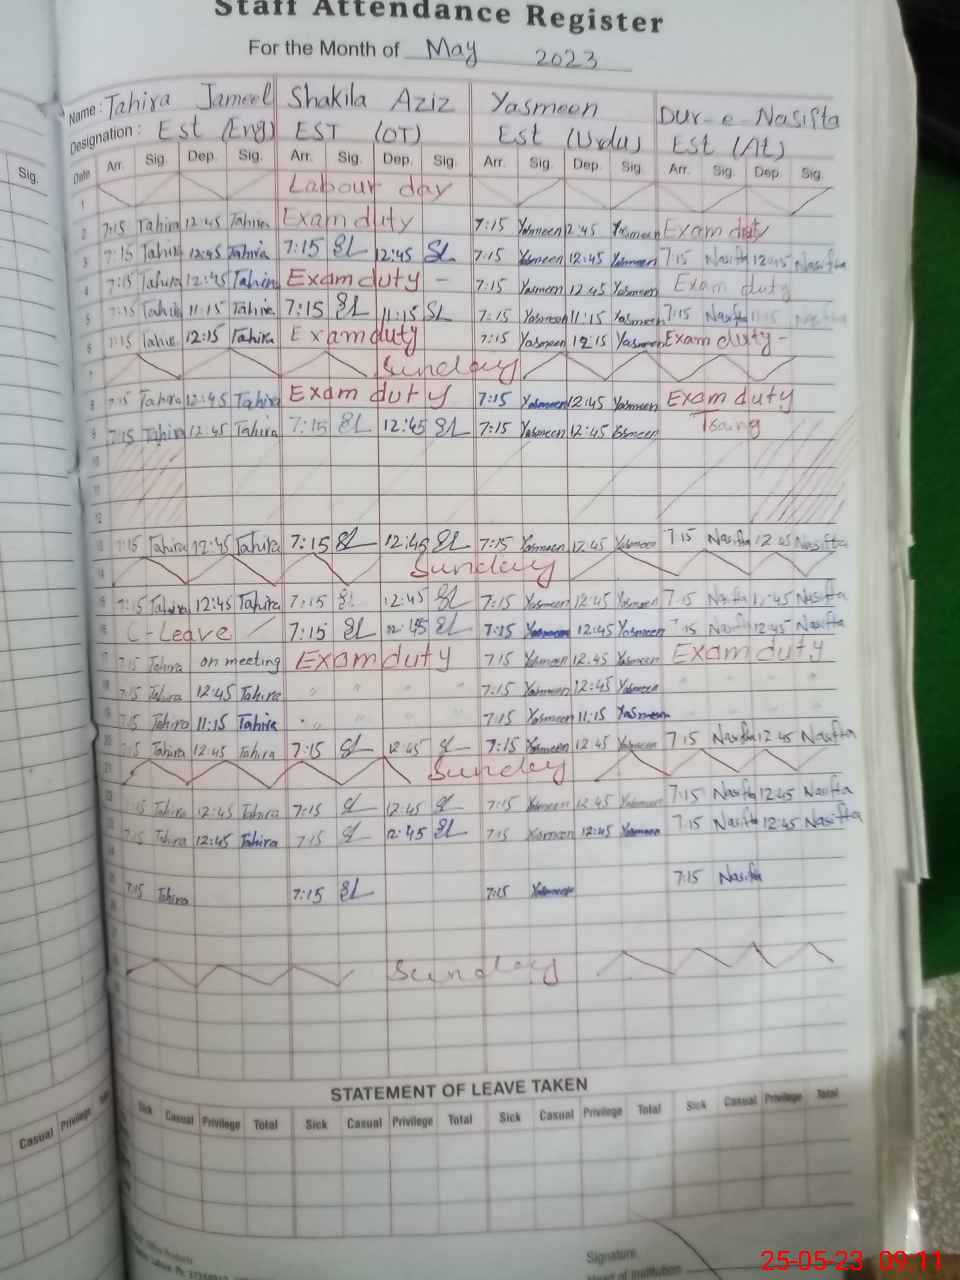 Staff Attendance Register
For the Month of May 2023
Sig.
Name : Tahira Jameel Shakila Aziz Yasmeen Dur-e-Nasifta
Designation : Est (Eng) EST (OT) Est (Urdu) Est (At)
Date Arr. Sig. Dep. Sig. Arr. Sig. Dep. Sig. Arr. Sig. Dep. Sig. Arr. Sig. Dep. Sig.
1 Labour day
2 7:15 Tahira 12:45 Tahira Exam duty 7:15 Yasmeen 2:45 Yasmeen Exam duty
3 7:15 Tahira 12:45 Tahira 7:15 SL 12:45 SL 7:15 Yasmeen 12:45 Yasmeen 7:15 Nasifta 12:45 Nasifta
4 7:15 Tahira 12:45 Tahira Exam duty - 7:15 Yasmeen 12:45 Yasmeen Exam duty
5 7:15 Tahira 11:15 Tahira 7:15 SL 11:15 SL 7:15 Yasmeen 11:15 Yasmeen 7:15 Nasifta 11:15 Nasifta
6 7:15 Tahira 12:15 Tahira Exam duty 7:15 Yasmeen 12:15 Yasmeen Exam duty -
7 Sunday
8 7:15 Tahira 12:45 Tahira Exam duty 7:15 Yasmeen 12:45 Yasmeen Exam duty
9 7:15 Tahira 12:45 Tahira 7:15 SL 12:45 SL 7:15 Yasmeen 12:45 Yasmeen
10
11
12
13 7:15 Tahira 12:45 Tahira 7:15 SL 12:45 SL 7:15 Yasmeen 12:45 Yasmeen 7:15 Nasifta 12:45 Nasifta
14 Sunday
15 7:15 Tahira 12:45 Tahira 7:15 SL 12:45 SL 7:15 Yasmeen 12:45 Yasmeen 7:15 Nasifta 12:45 Nasifta
16 C-Leave 7:15 SL 12:45 SL 7:15 Yasmeen 12:45 Yasmeen 7:15 Nasifta 12:45 Nasifta
17 7:15 Tahira on meeting Exam duty 7:15 Yasmeen 12:45 Yasmeen Exam duty
18 7:15 Tahira 12:45 Tahira " " " " 7:15 Yasmeen 12:45 Yasmeen " " "
19 7:15 Tahira 11:15 Tahira " " " " 7:15 Yasmeen 11:15 Yasmeen " " "
20 7:15 Tahira 12:45 Tahira 7:15 SL 12:45 SL 7:15 Yasmeen 12:45 Yasmeen 7:15 Nasifta 12:45 Nasifta
21 Sunday
22 7:15 Tahira 12:45 Tahira 7:15 SL 12:45 SL 7:15 Yasmeen 12:45 Yasmeen 7:15 Nasifta 12:45 Nasifta
23 7:15 Tahira 12:45 Tahira 7:15 SL 12:45 SL 7:15 Yasmeen 12:45 Yasmeen 7:15 Nasifta 12:45 Nasifta
24
25 7:15 Tahira 7:15 SL 7:15 Yasmeen 7:15 Nasifta
Sunday
STATEMENT OF LEAVE TAKEN
Sick Casual Privilege Total Sick Casual Privilege Total Sick Casual Privilege Total Sick Casual Privilege Total
Casual Privilege
Signature
Head of Institution
25-05-23 09:11